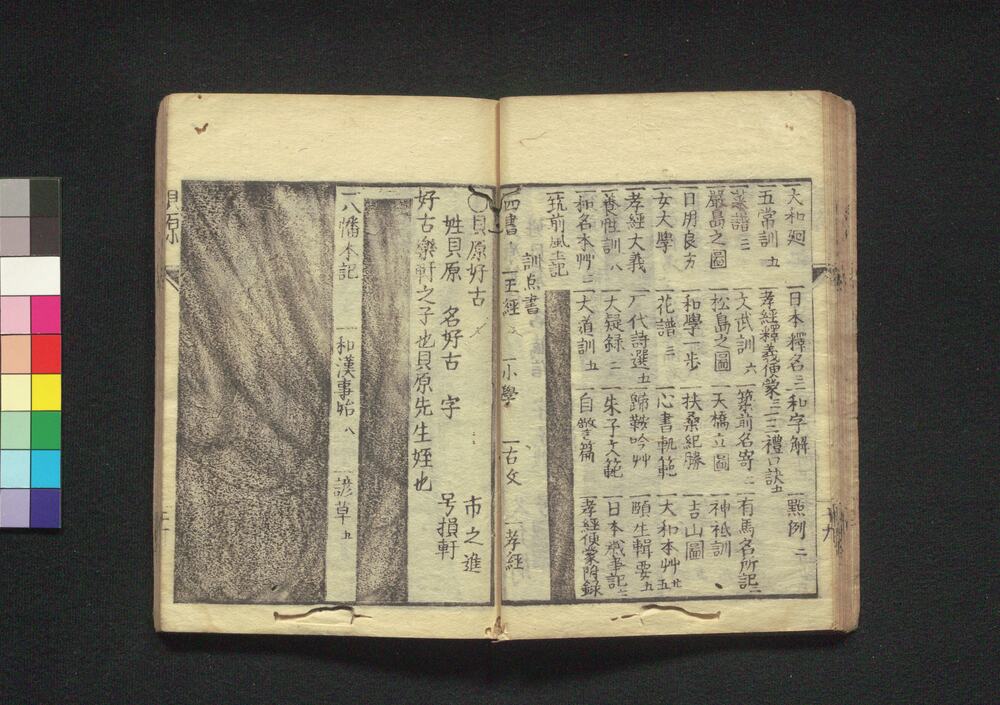 大和廻 一日本釋名三 一和字解 一點例二
一五常訓五 一孝經釋義便蒙 一三禮口訣五
一菜譜三 一文武訓六 一築前名寄二 一有馬名所記二
一嚴島之圖 一松島之圖 一天橋立圖 一神祗訓
一日用良方 一和學一步 一扶桑紀勝 一吉山圖
一女大學 一花譜三 一心書軌範 一大和本艸廿五
一孝經大義 一八代詩選五 一蹄鞍吟艸 一頤生輯要五
一養性訓八 一大疑録二 一朱子文範 一日本歲事記
一和名本艸二 一大道訓五 一自警篇 一孝經便蒙附錄
一筑前風土記
訓点書
一四書 一五經 一小學 一古文 一孝經
〇貝原好古 市之進
姓貝原 名好古 字 号損軒
好古樂軒之子也貝原先生姪也
一八幡本記 一和漢事始八 一諺草五
貝原